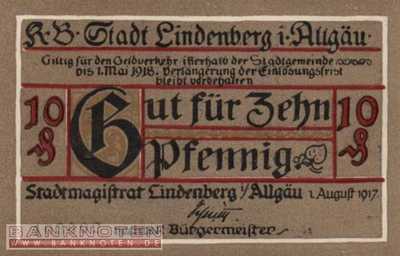 K. B. Stadt Lindenberg i. Allgäu.
Giltig für den Geldverkehr i8erhalb der Stadtgemeinde
bis 1. Mai 1918. Verlängerung der Einlösungsfrist
bleibt vorbehalten
10 Gut für Zehn 10
₰ Pfennig ₰
Stadtmagistrat Lindenberg i/Allgäu 1. August 1917.
Bürgermeister
BANKNOTEN
WWW.BANKNOTEN.DE